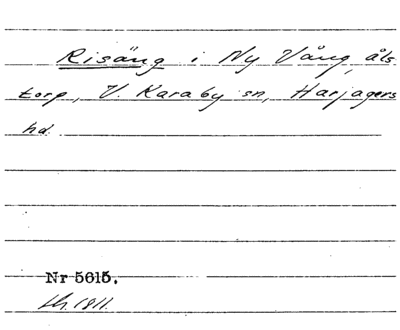 Risäng i Ny Vång, åls
torp, V. Karaby sn, Harjagers
hd.
Nr 5615.
1811.